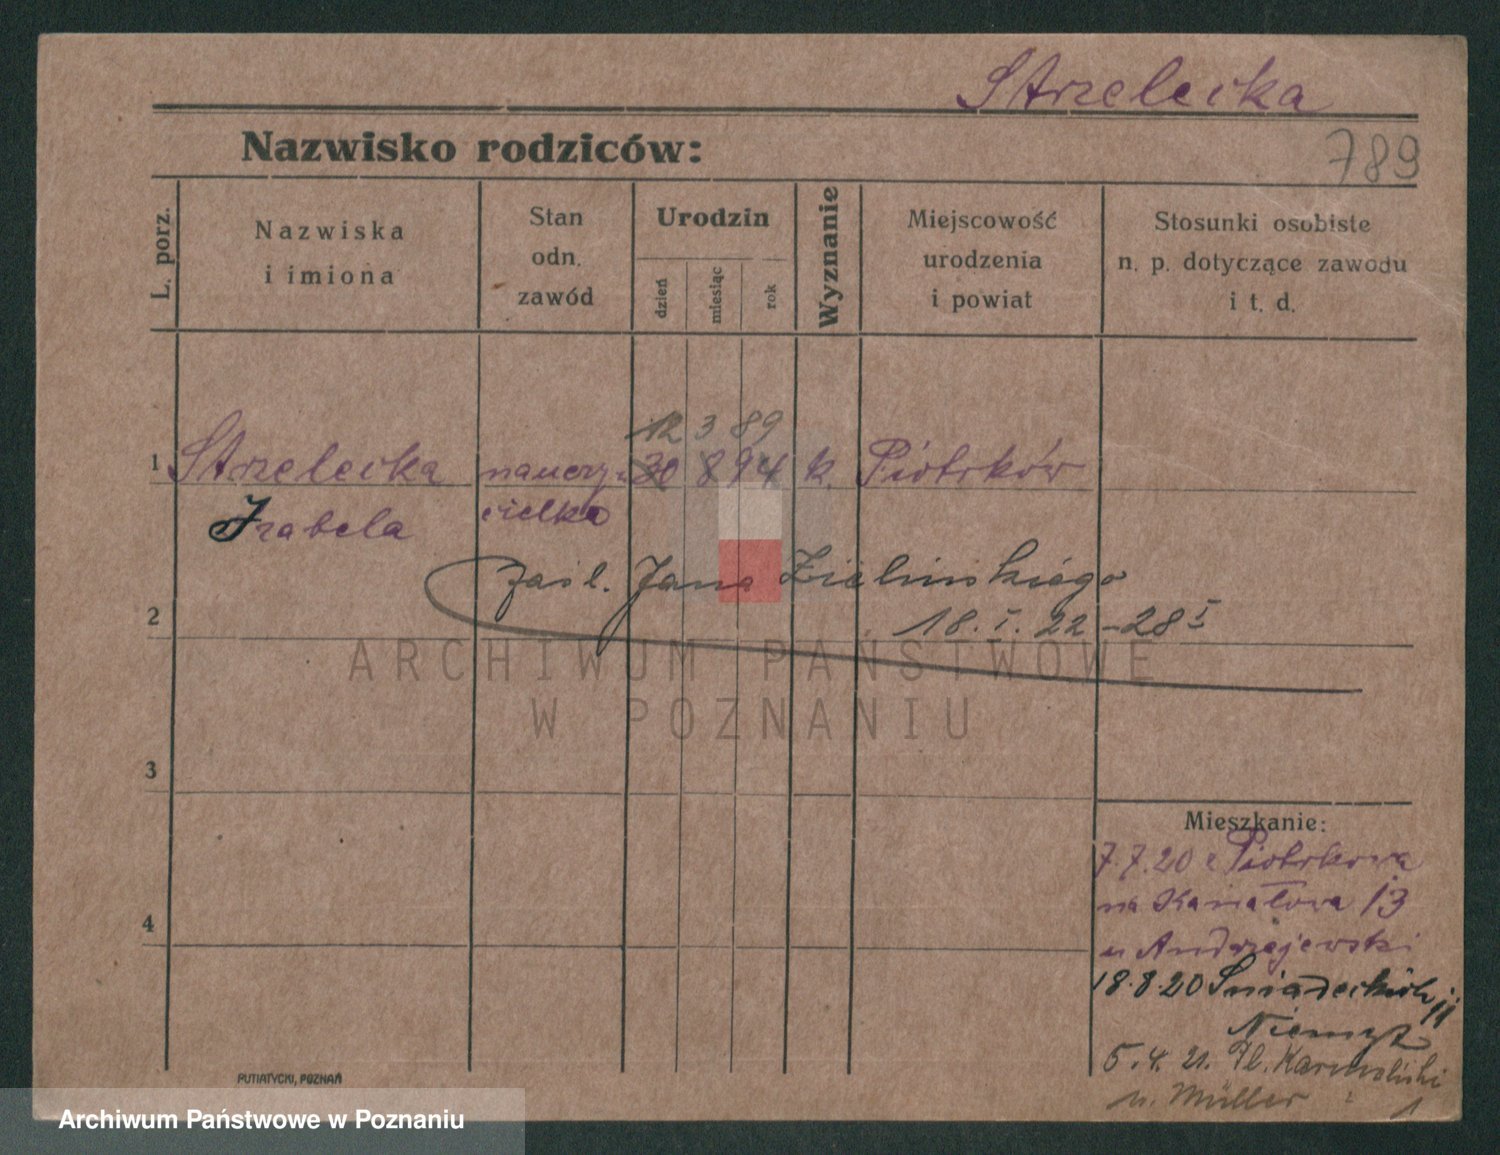 Strzelecka
789
Nazwisko rodziców:
L. porz.
Nazwiska
i imiona
Stan
odn.
zawód
Urodzin
dzień
miesiąc
rok
Wyznanie
Miejscowość
urodzenia
i powiat
Stosunki osobiste
n. p. dotyczące zawodu
i t. d.
12 3 89
1 Strzelecka nauczy- 30 8 94 k. Piotrków
Izabela cielka
zaśl. Jana Zielińskiego
2 18. I. 22 - 28 I
ARCHIWUM PAŃSTWOWE
W POZNANIU
3
Mieszkanie:
7.7.20 z Piotrkowa
na Kanałowa 13
u Andrzejewski
4
18.8.20 Śniadeckich 11
5. 4. 21. Pl. Karmelicki
u. Müller 1
PUTIATYCKI, POZNAŃ
Archiwum Państwowe w Poznaniu